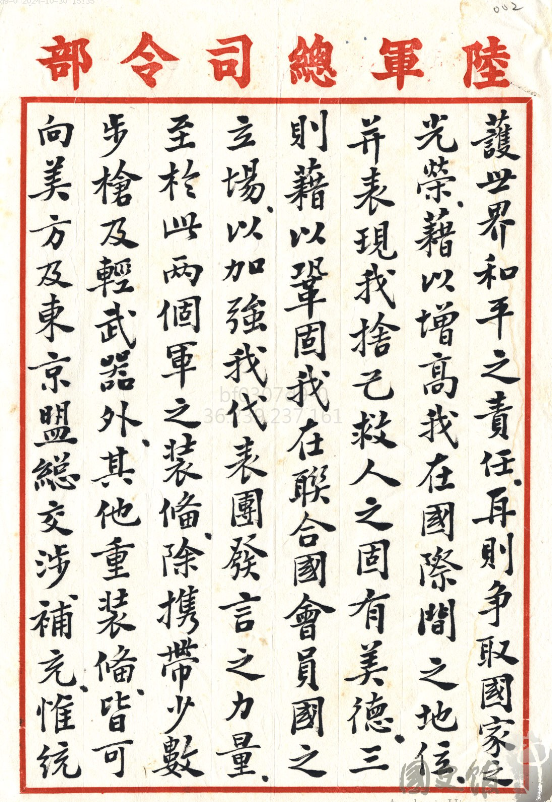 002
陸軍總司令部
護世界和平之責任、再則争取國家之
光榮、藉以增高我在國際間之地位、
并表現我捨己救人之固有美德、三
則藉以鞏固我在聯合國會員國之
立場、以加強我代表團發言之力量、
至於此两個軍之装俻、除携帶少數
步槍及輕武器外、其他重装俻、皆可
向美方及東京盟総交涉補充、惟统
國史館